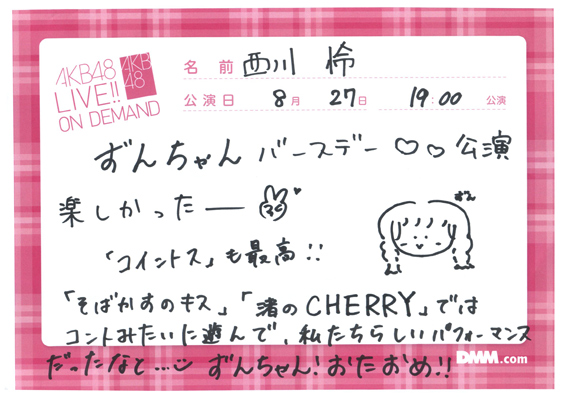 AKB48
LIVE!!
ON DEMAND
AKB
48
名前 西川 怜
公演日 8月 27日 19:00 公演
ずんちゃん バースデー♡♡公演
楽しかったー
ずん
「コイントス」も最高!!
「そばかすのキス」「渚のCHERRY」では
コントみたいに遊んで、私たちらしいパフォーマンス
だったなと… ずんちゃん!おたおめ!!
DMM.com